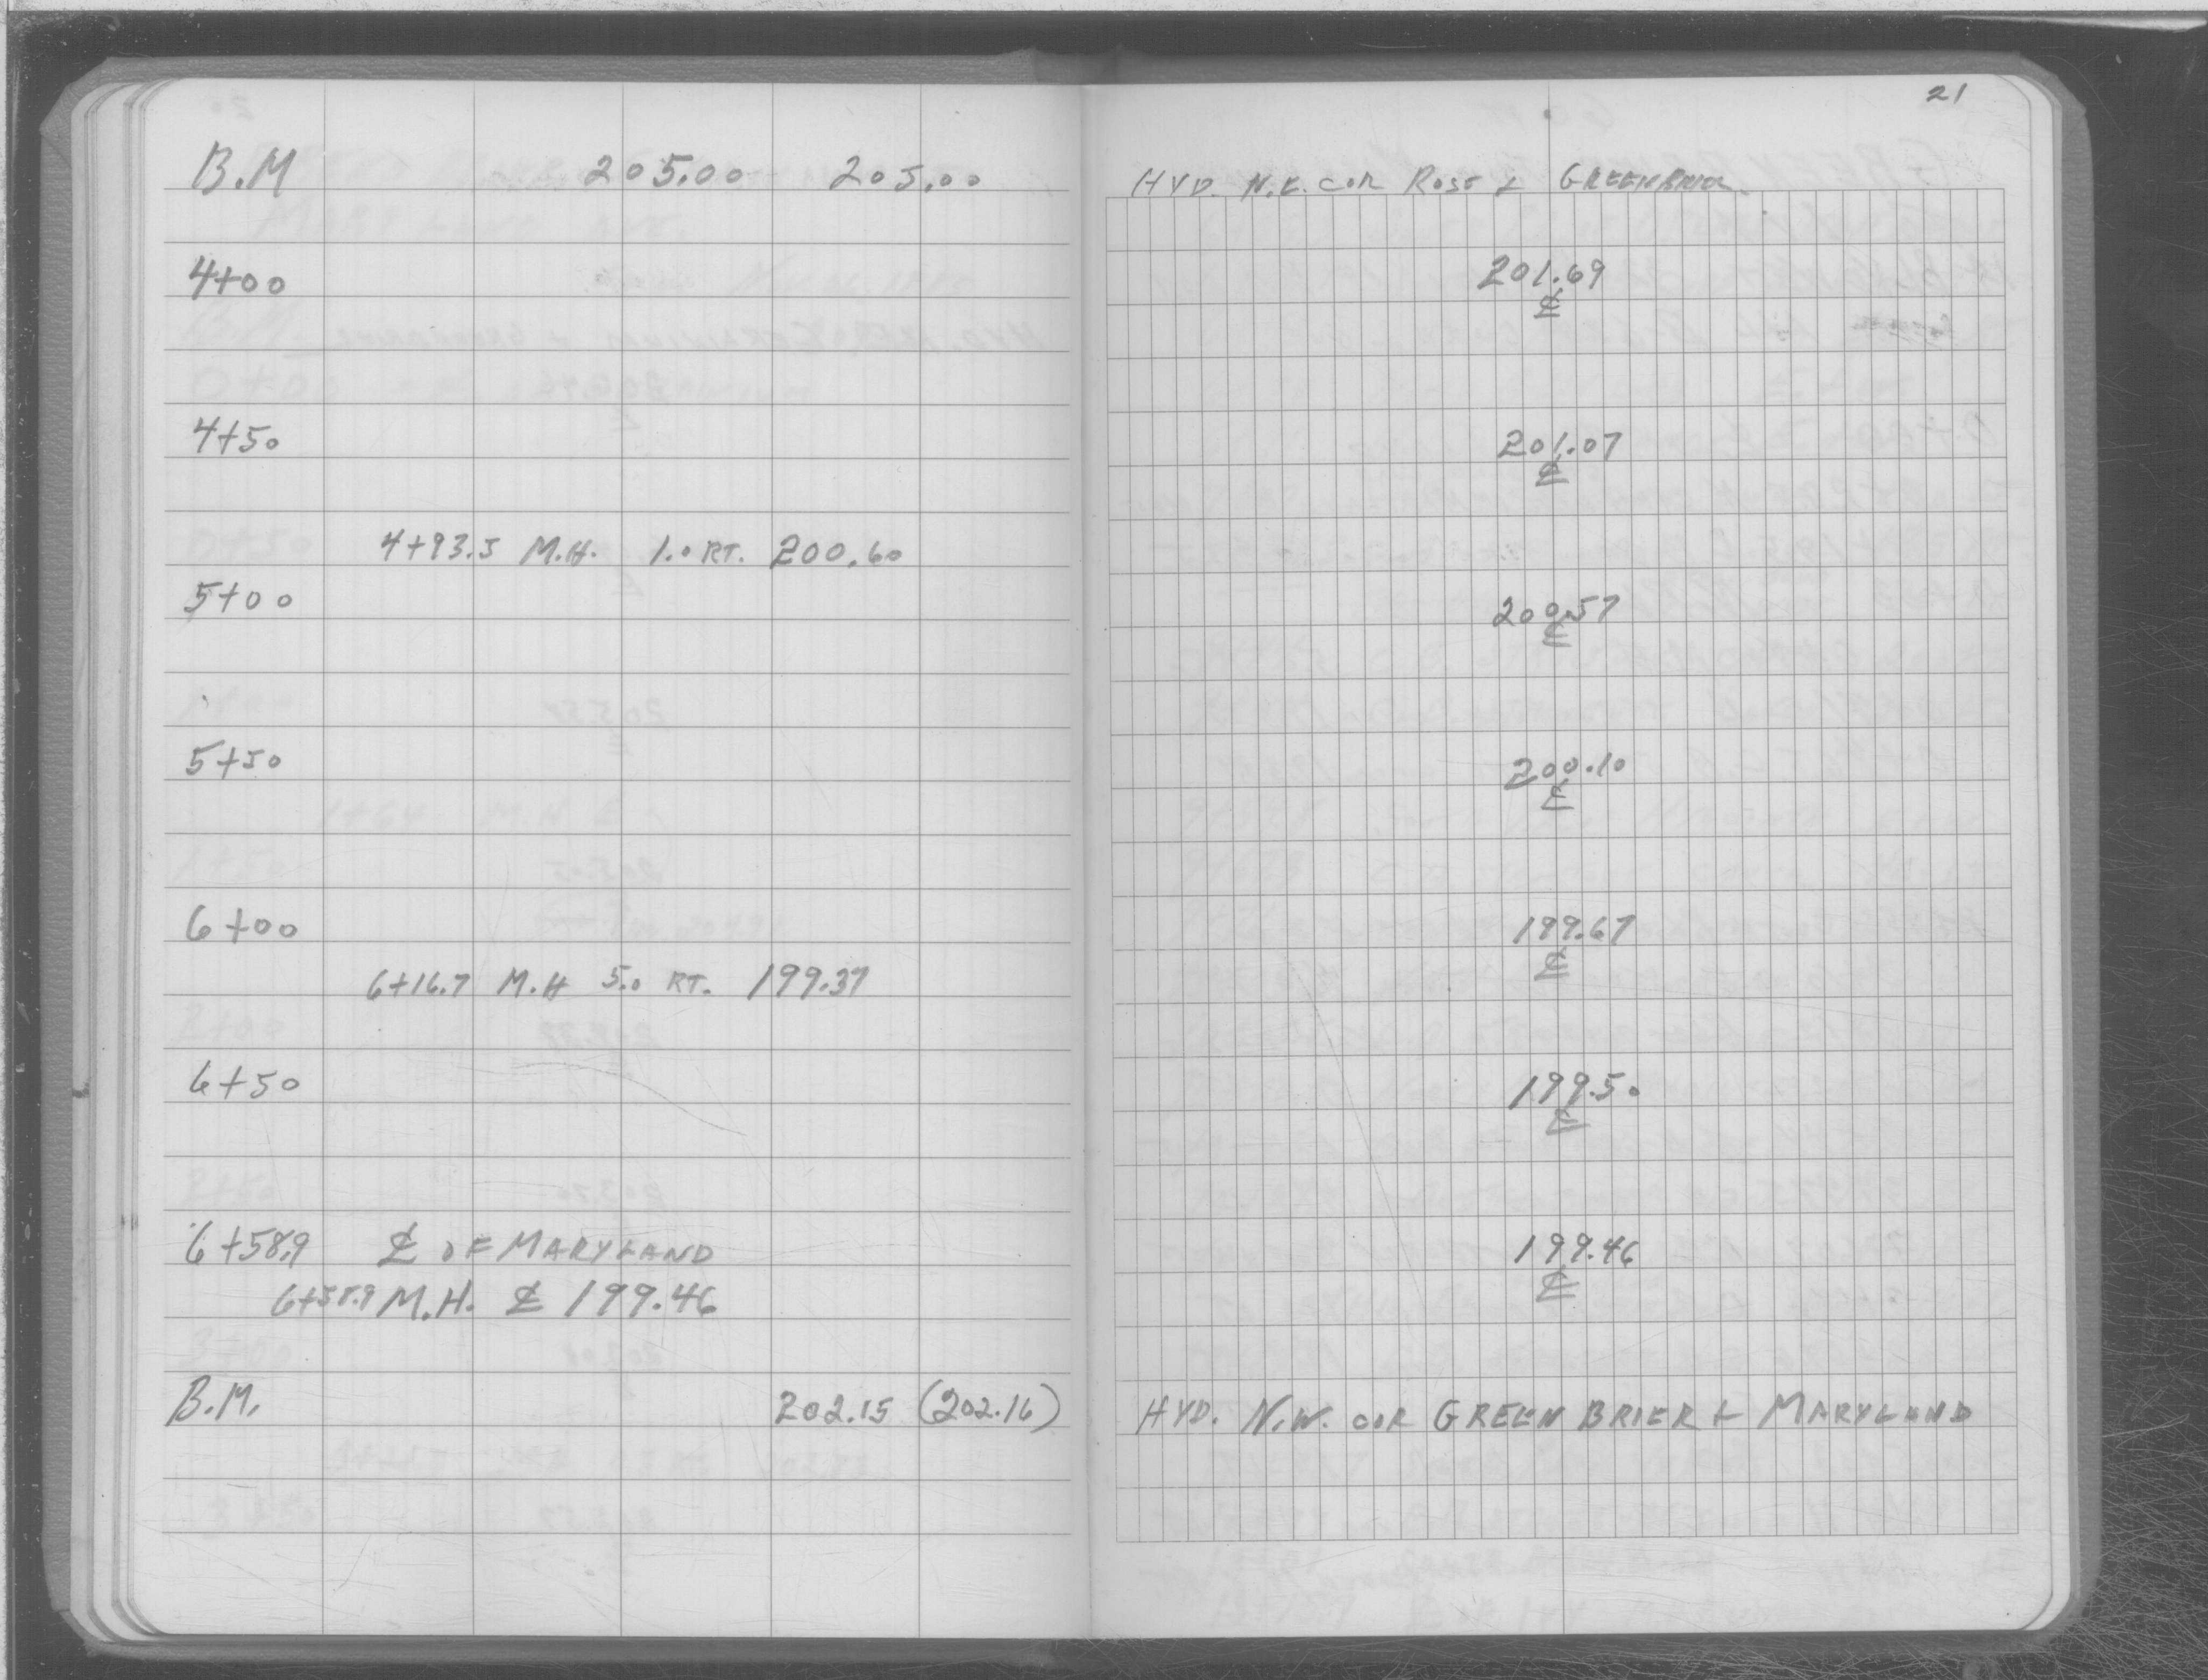 21
B.M 205.00 205.00 HYD. N.E. COR ROSE & GREENBRIER
4+00 201.69
℄
4+50 201.07
℄
4+93.5 M.H. 1.0 RT. 200.60
5+00 200.57
℄
5+50 200.10
℄
6+00 199.67
℄
6+16.7 M.H 5.0 RT. 199.37
6+50 199.50
℄
6+58.9 ℄ OF MARYLAND 199.46
℄
6+58.9 M.H. ℄ 199.46
B.M. 202.15 (202.16) HYD. N.W. COR GREEN BRIER & MARYLAND